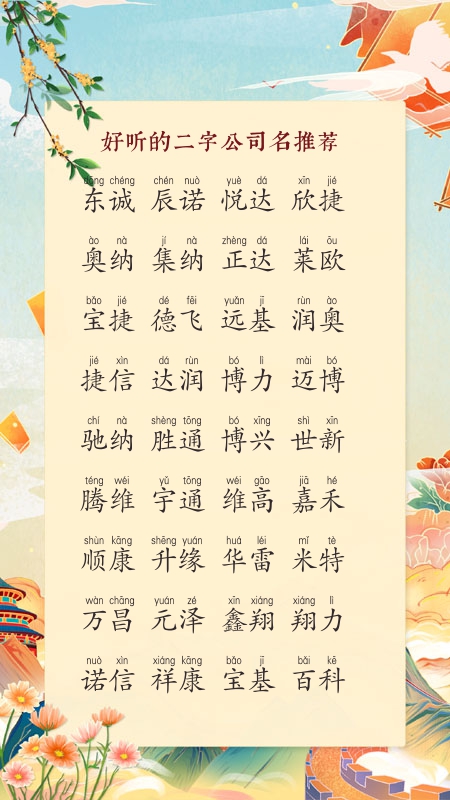 好听的二字公司名推荐
dōng chéng chén nuò yuè dá xīn jié
东诚 辰诺 悦达 欣捷
ào nà jí nà zhèng dá lái ōu
奥纳 集纳 正达 莱欧
bǎo jié dé fēi yuǎn jī rùn ào
宝捷 德飞 远基 润奥
jié xìn dá rùn bó lì mài bó
捷信 达润 博力 迈博
chí nà shèng tōng bó xīng shì xīn
驰纳 胜通 博兴 世新
téng wéi yǔ tōng wéi gāo jiā hé
腾维 宇通 维高 嘉禾
shùn kāng shēng yuán huá léi mǐ tè
顺康 升缘 华雷 米特
wàn chāng yuán zé xīn xiáng xiáng lì
万昌 元泽 鑫翔 翔力
nuò xìn xiáng kāng bǎo jī bǎi kē
诺信 祥康 宝基 百科